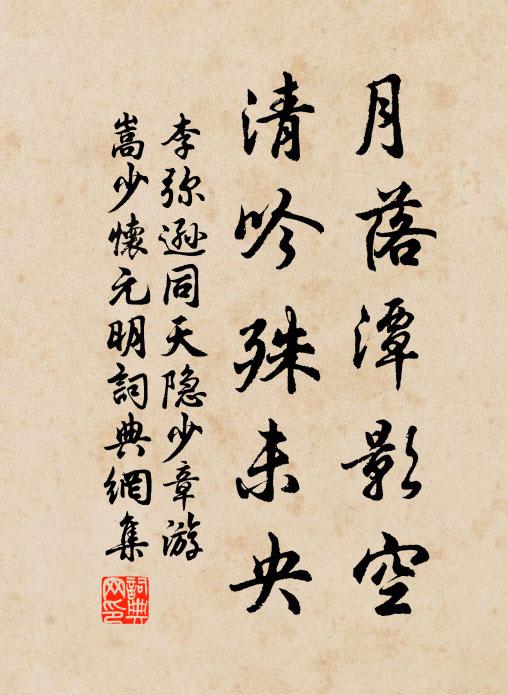 月落潭影空
清吟殊未央
李弥遜同天隐少章游
嵩少懷元明詞典網集
詞典
网印